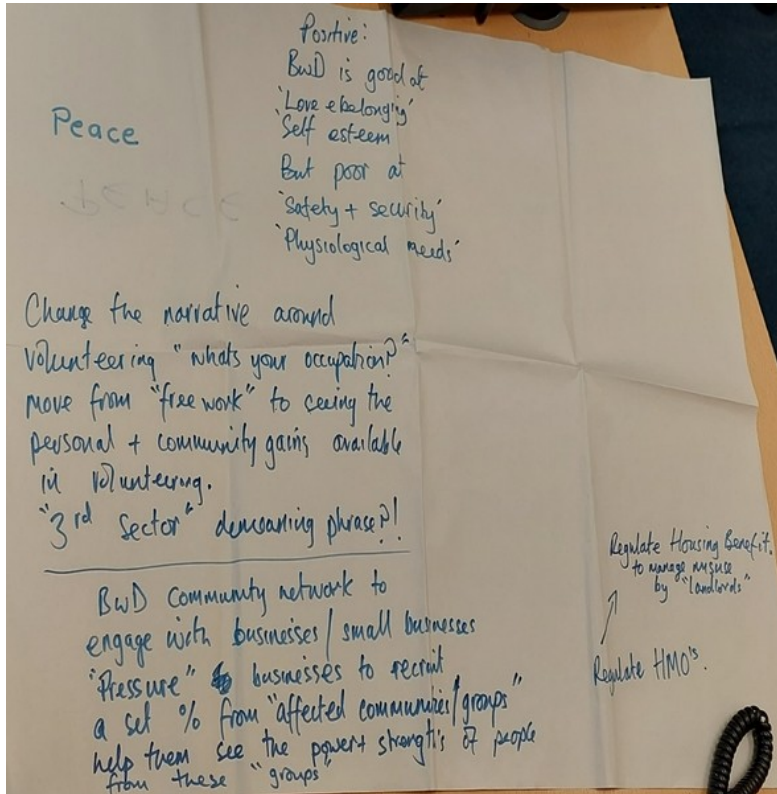 Peace
Positive:
BwD is good at
'Love + belonging'
'Self esteem
But poor at
'Safety + security'
'Physiological needs'
Change the narrative around
volunteering "whats your occupation?"
move from "free work" to seeing the
personal + community gains available
in volunteering.
"3rd sector" demeaning phrase?!
BwD community network to
engage with businesses / small businesses
"Pressure" businesses to recruit
a set % from "affected communities/groups"
help them see the power + strengths of people
from these "groups"
Regulate Housing Benefit.
to manage misuse
by "landlords"
Regulate HMO's.